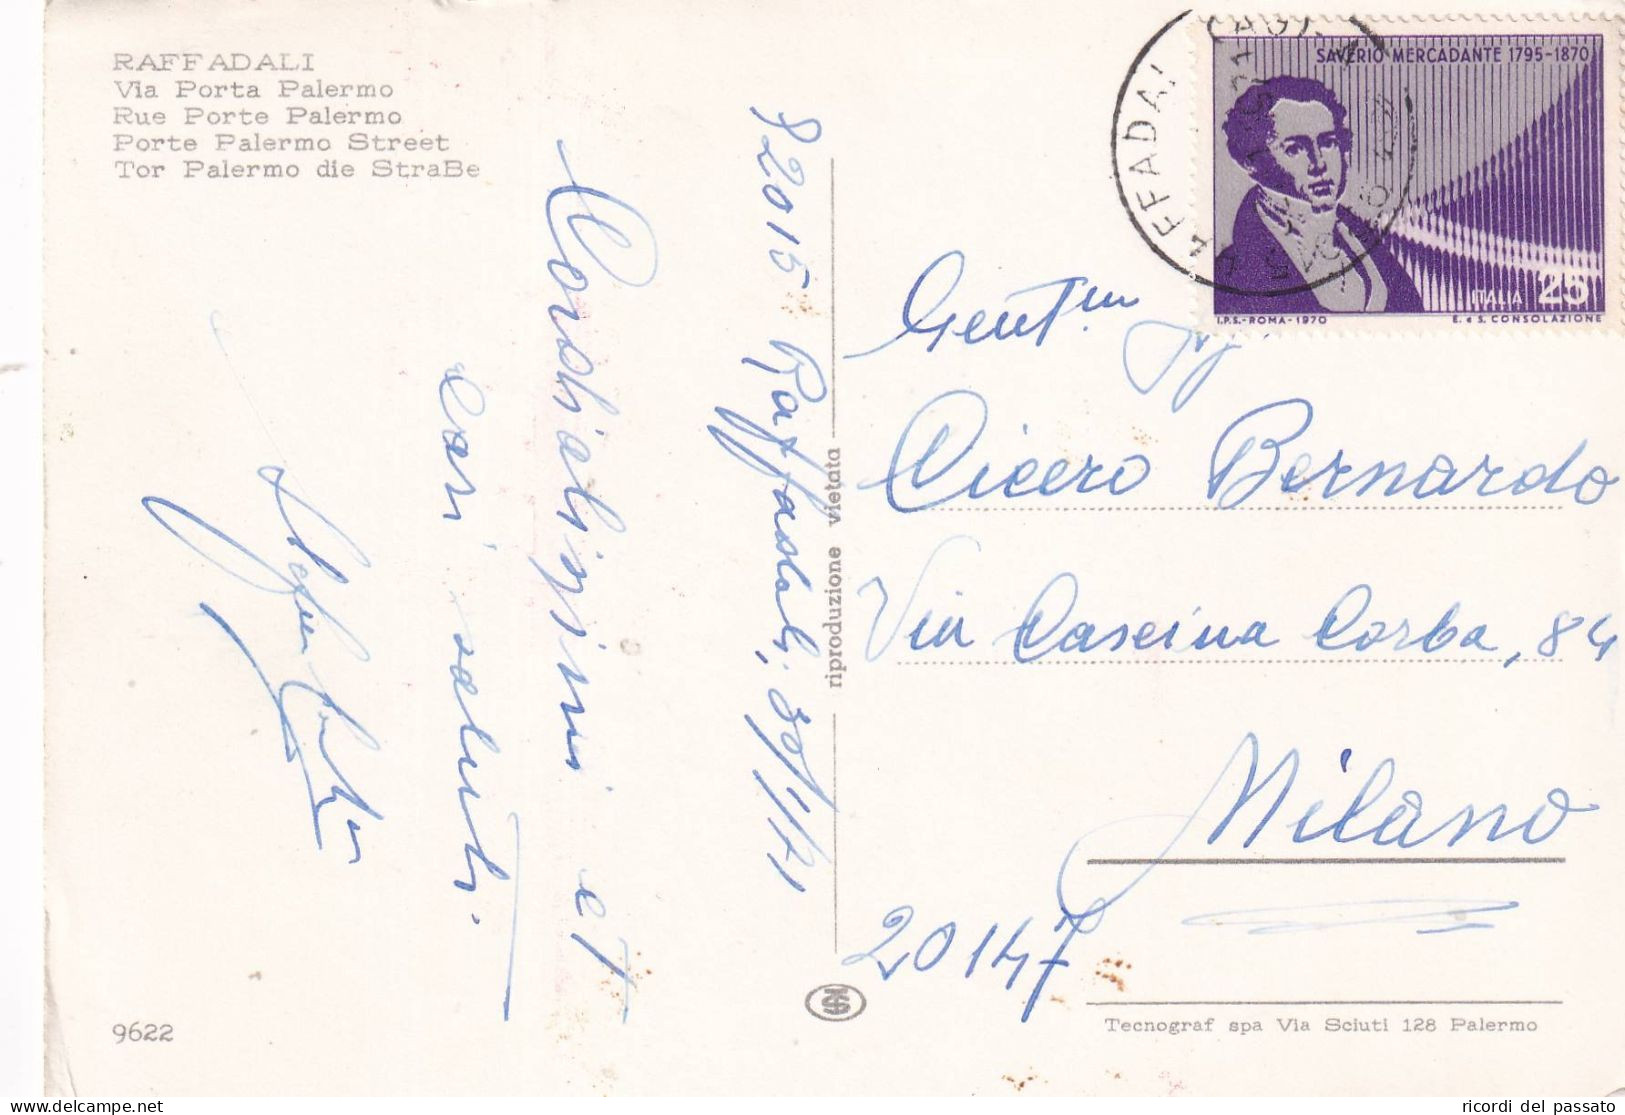 RAFFADALI
Via Porta Palermo
Rue Porte Palermo
Porte Palermo Street
Tor Palermo die StraBe
82015 Raffadali, 30/1/71
Cordialissimi et
cari saluti.
9622
riproduzione vietata
SAVERIO MERCADANTE 1795-1870
ITALIA 25
I.P.S.-ROMA-1970 E. e S. CONSOLAZIONE
RAFFADALI
Gent.m
Cicero Bernardo
Via Cascina Corba, 84
Milano
20147
Tecnograf spa Via Sciuti 128 Palermo
delcampe.net
ricordi del passato